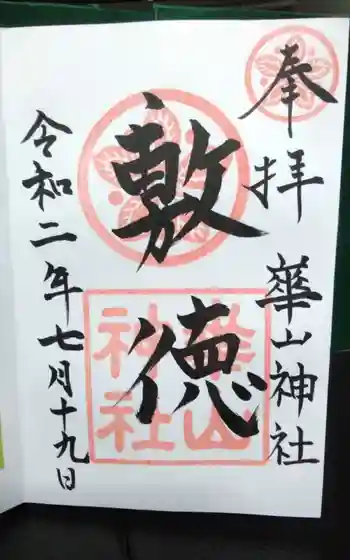 奉拝
華山神社
敷徳
華山
神社
令和二年七月十九日